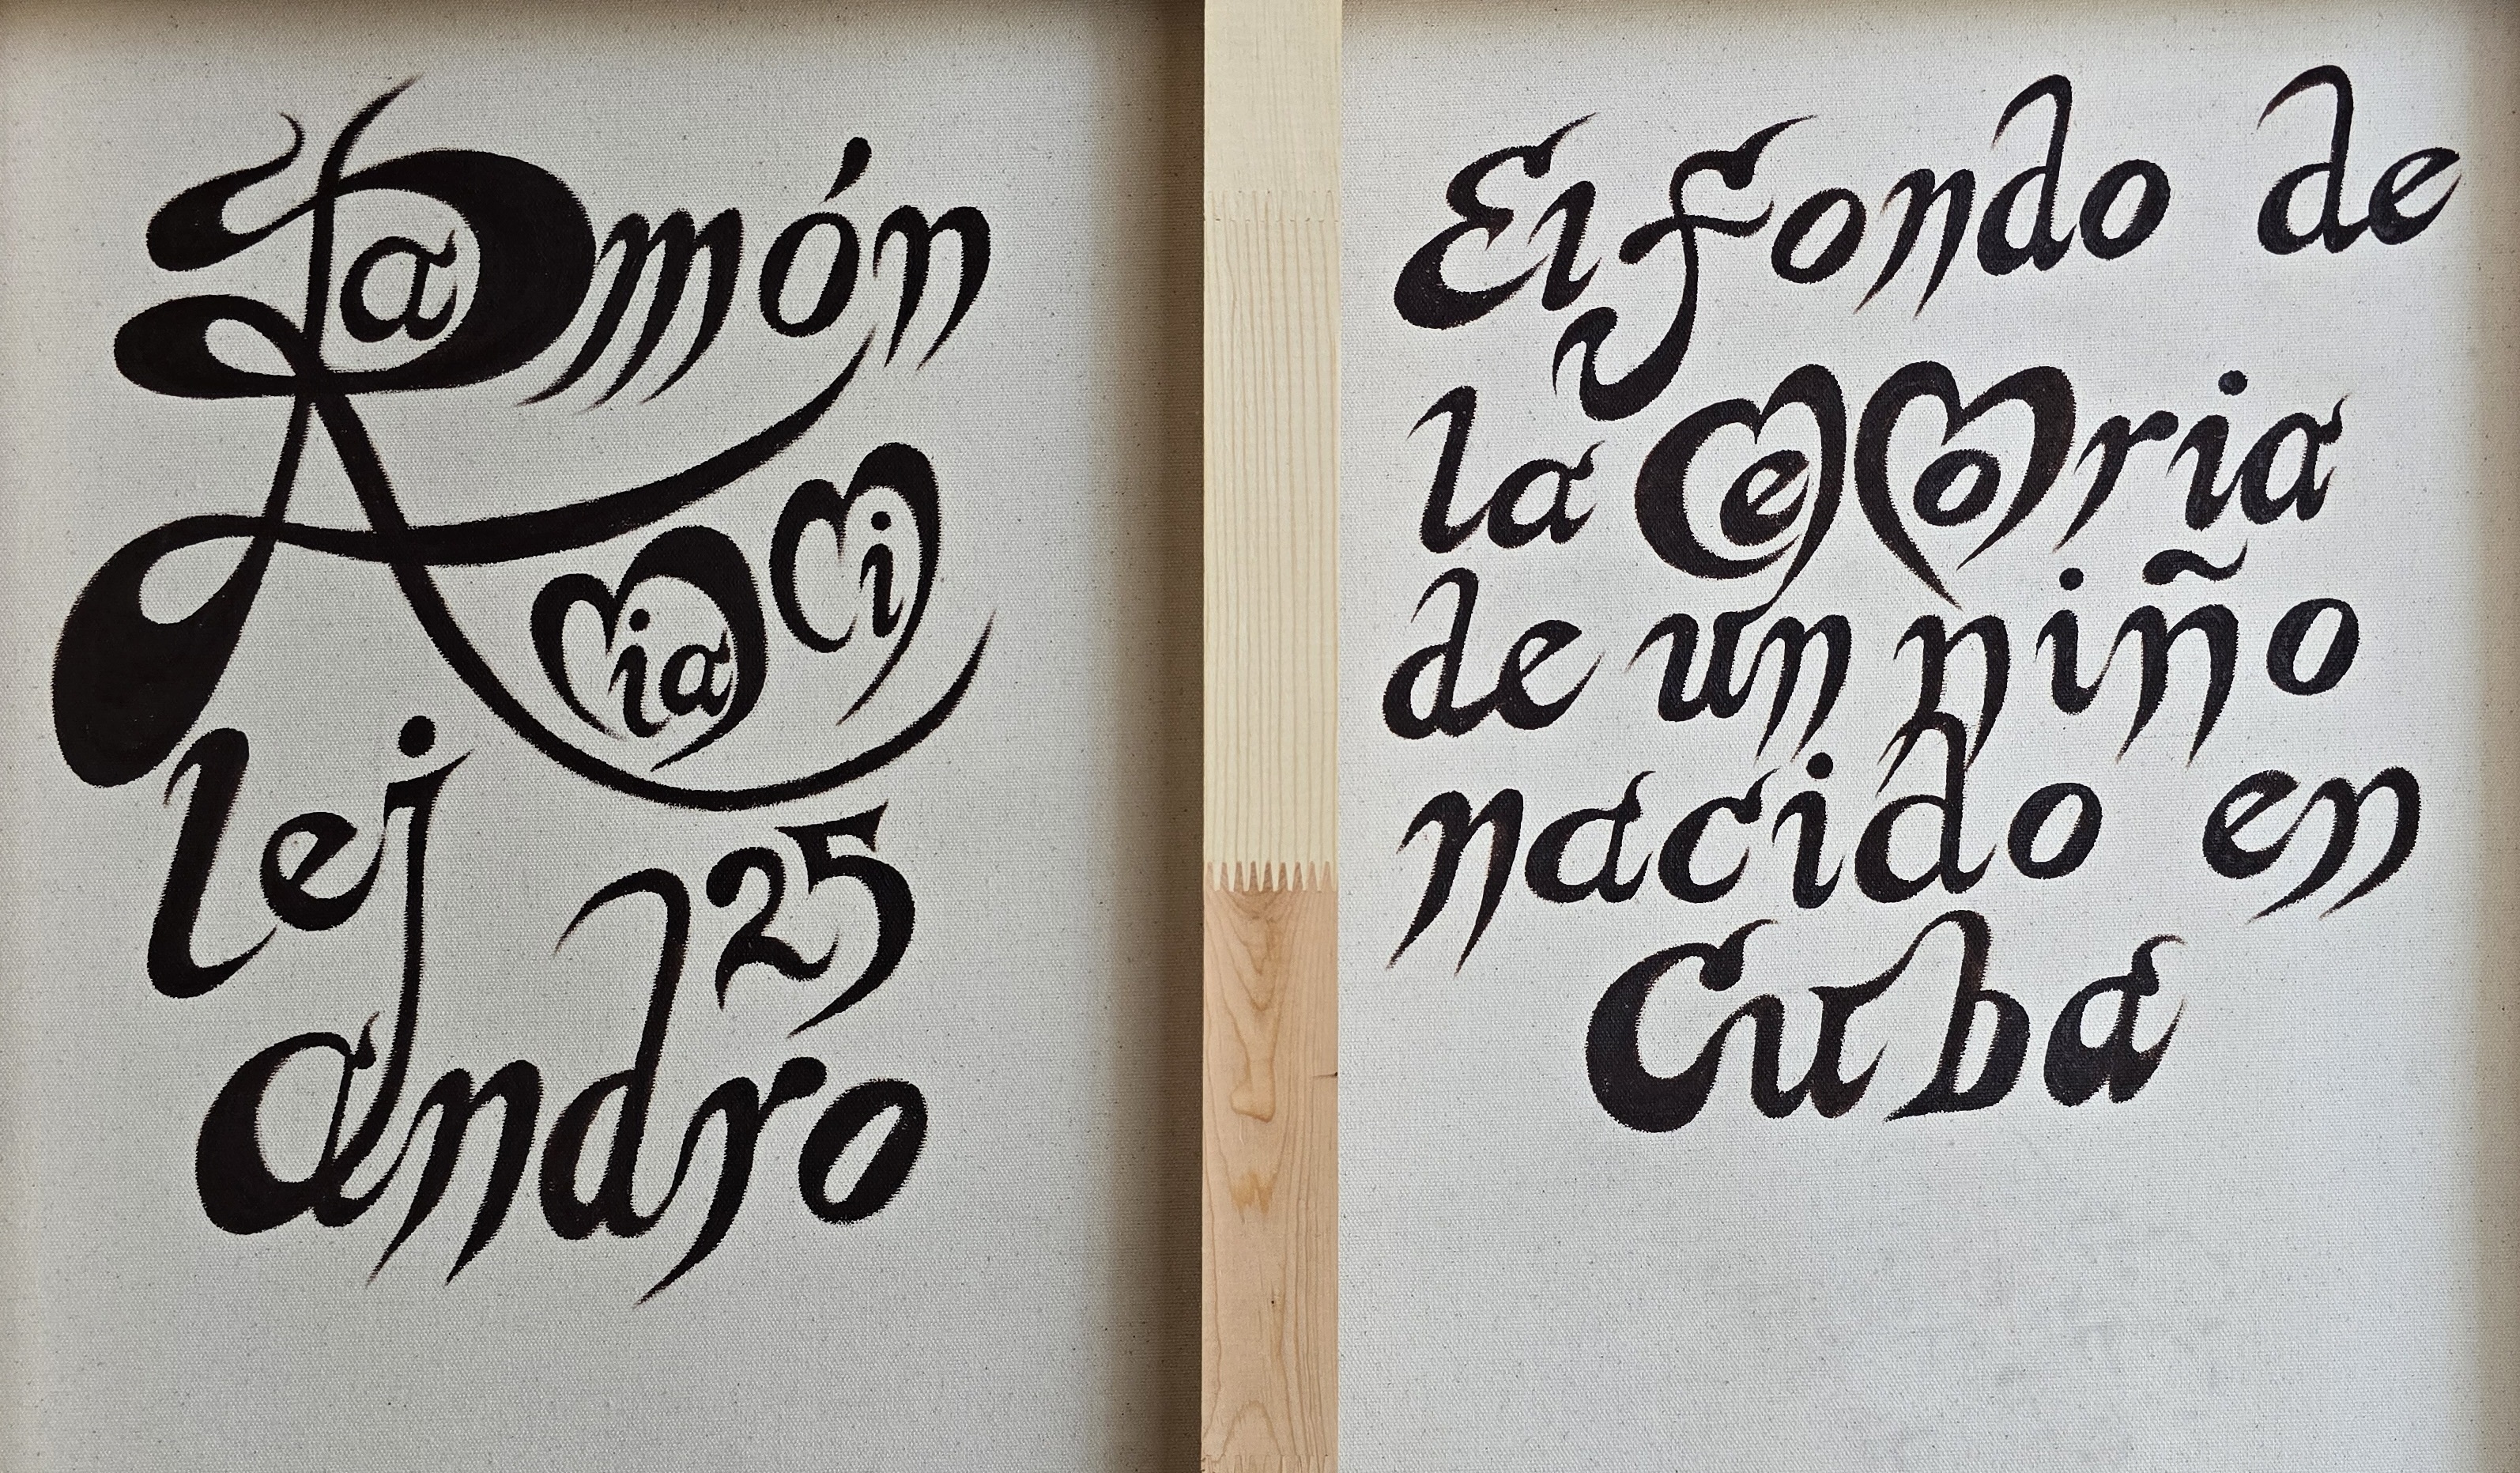 Ramón
Alej
Miami
25
andro
El fondo de
la memoria
de un niño
nacido en
Cuba